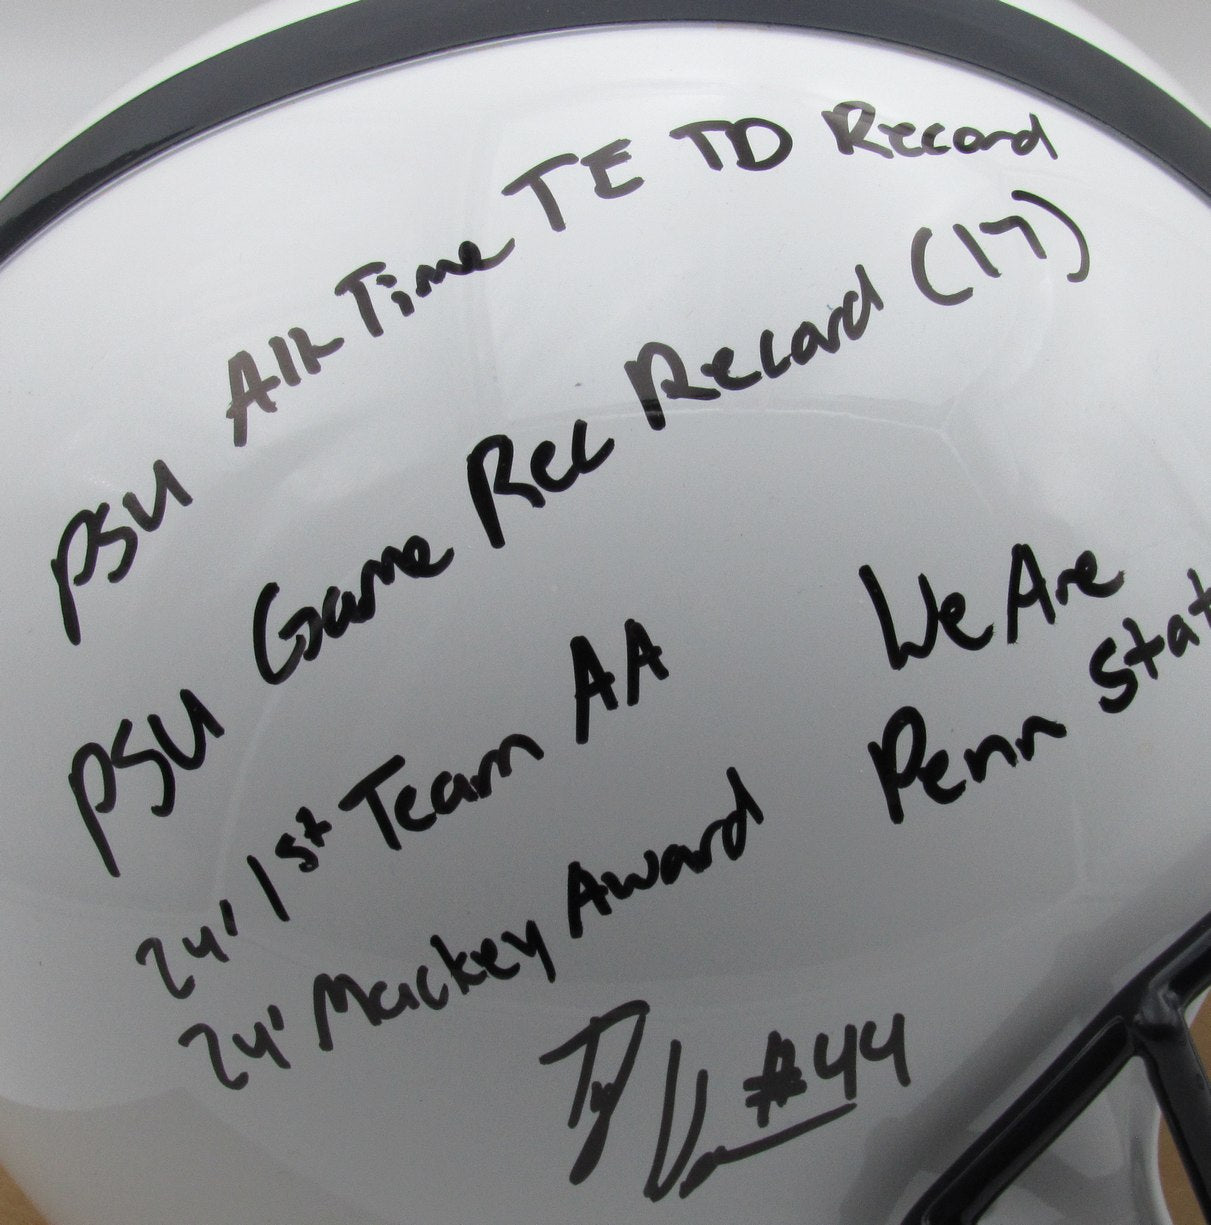 PSU All-Time TE TD Record
PSU Game Rec Record (17)
24' 1st Team AA
24' Mackey Award
We Are
Penn Stat
#44